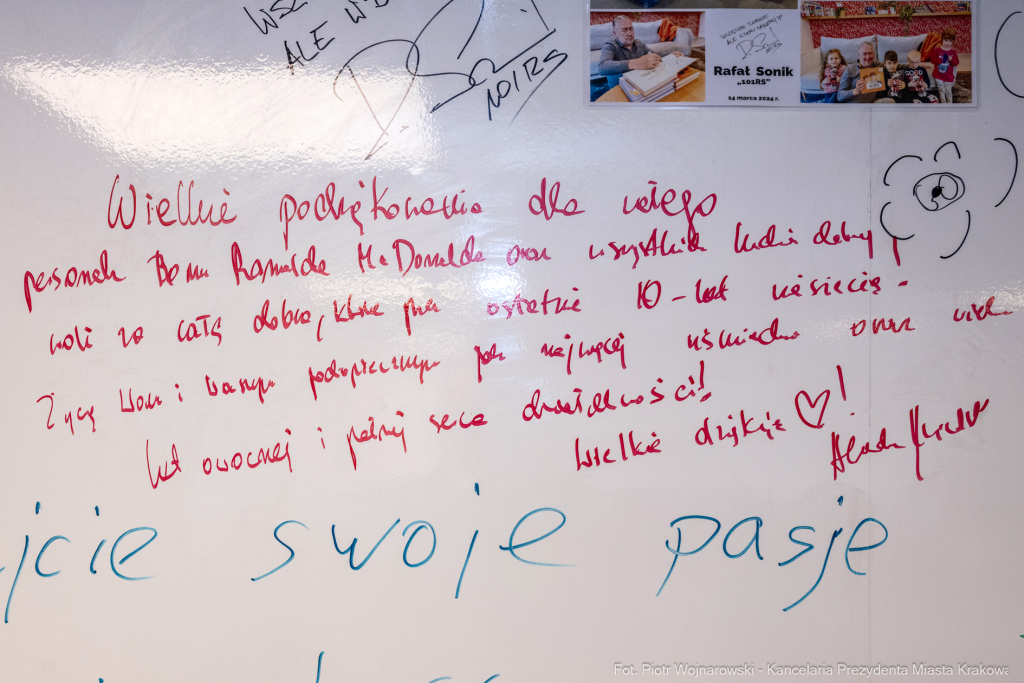 WSZ
ALE W
101RS
Rafał Sonik
„101RS”
14 marca 2024 r.
Wielkie podziękowania dla całego
personelu Domu Ronalda McDonalda oraz wszystkich ludzi dobrej
woli za całe dobro, które przez ostatnie 10-lat niesiecie.
Życzę Wam i Waszym podopiecznym jak najwięcej uśmiechu oraz wielu
lat owocnej i pełnej serca działalności!
Wielkie dziękuję ♡!
jcie swoje pasje
Fot. Piotr Wojnarowski - Kancelaria Prezydenta Miasta Krakowa